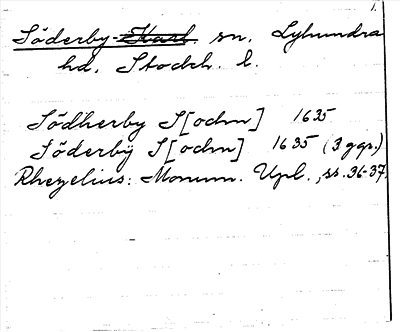 1.
Söderby-Karl, sn. Lyhundra
hd. Stockh. l.
Södherby S[ochn] 1635
Söderbÿ S[ochn] 1635 (3 ggr.)
Rhezelius: Monum. Upl., ss. 36-37.